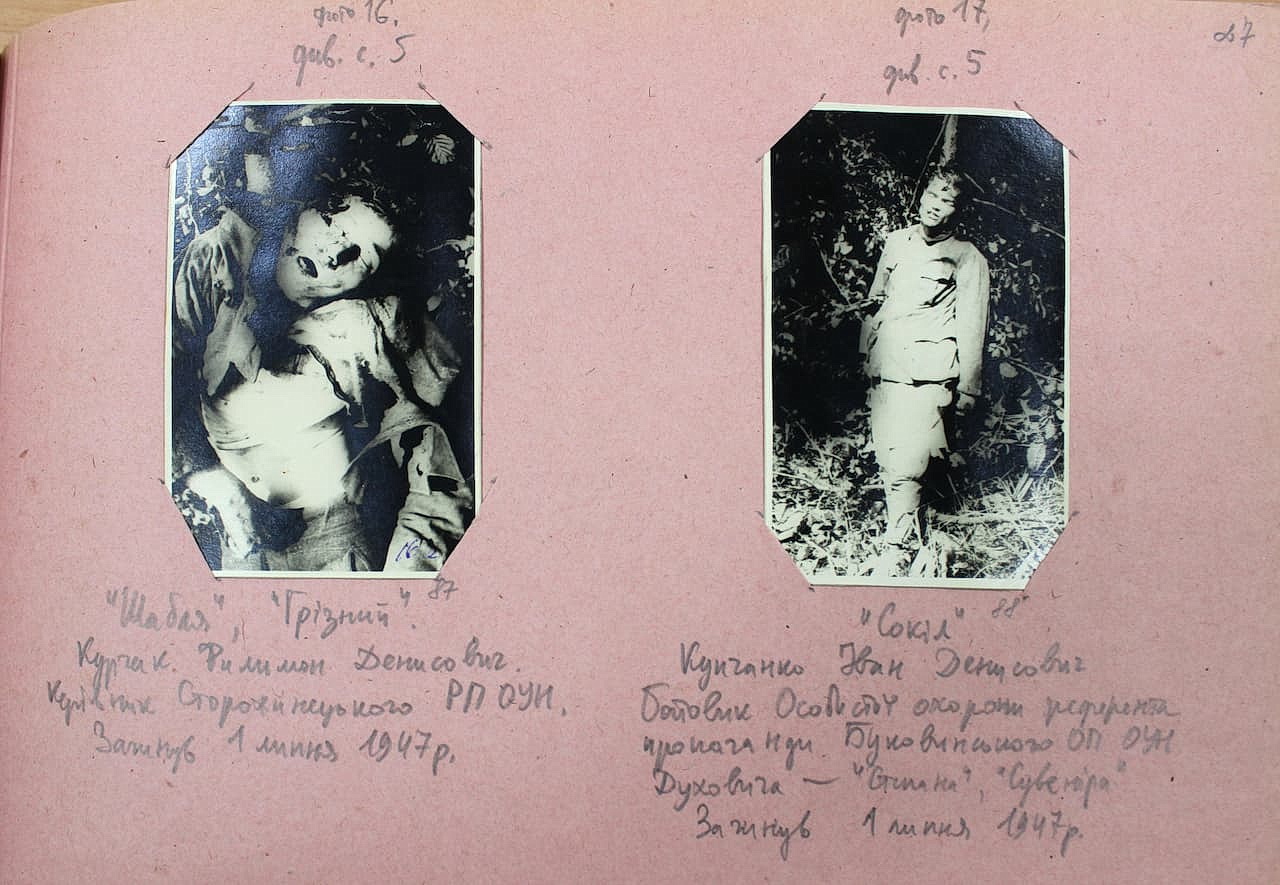 фото 16.
див. с. 5
фото 17,
див. с. 5
87
"Шабля", "Грізний". 87
Курчак Филимон Денисович.
Керівник Сторожинецького РП ОУН.
Загинув 1 липня 1947р.
"Сокіл" 88
Купчанко Іван Денисович
Бойовик Особистої охорони референта
пропаганди Буковинського ОП ОУН
Духовича — "Степана", "Сувеніра"
Загинув 1 липня 1947р.